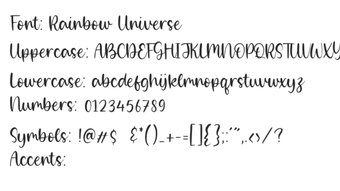 Font: Rainbow Universe
Uppercase: ABCDEFGHIJKLMNOPQRSTUVWXY
Lowercase: abcdefghijklmnopqrstuvwxyz
Numbers: 0123456789
Symbols: !@#$ &*()_+-=[]{};:'",.<>/?
Accents: